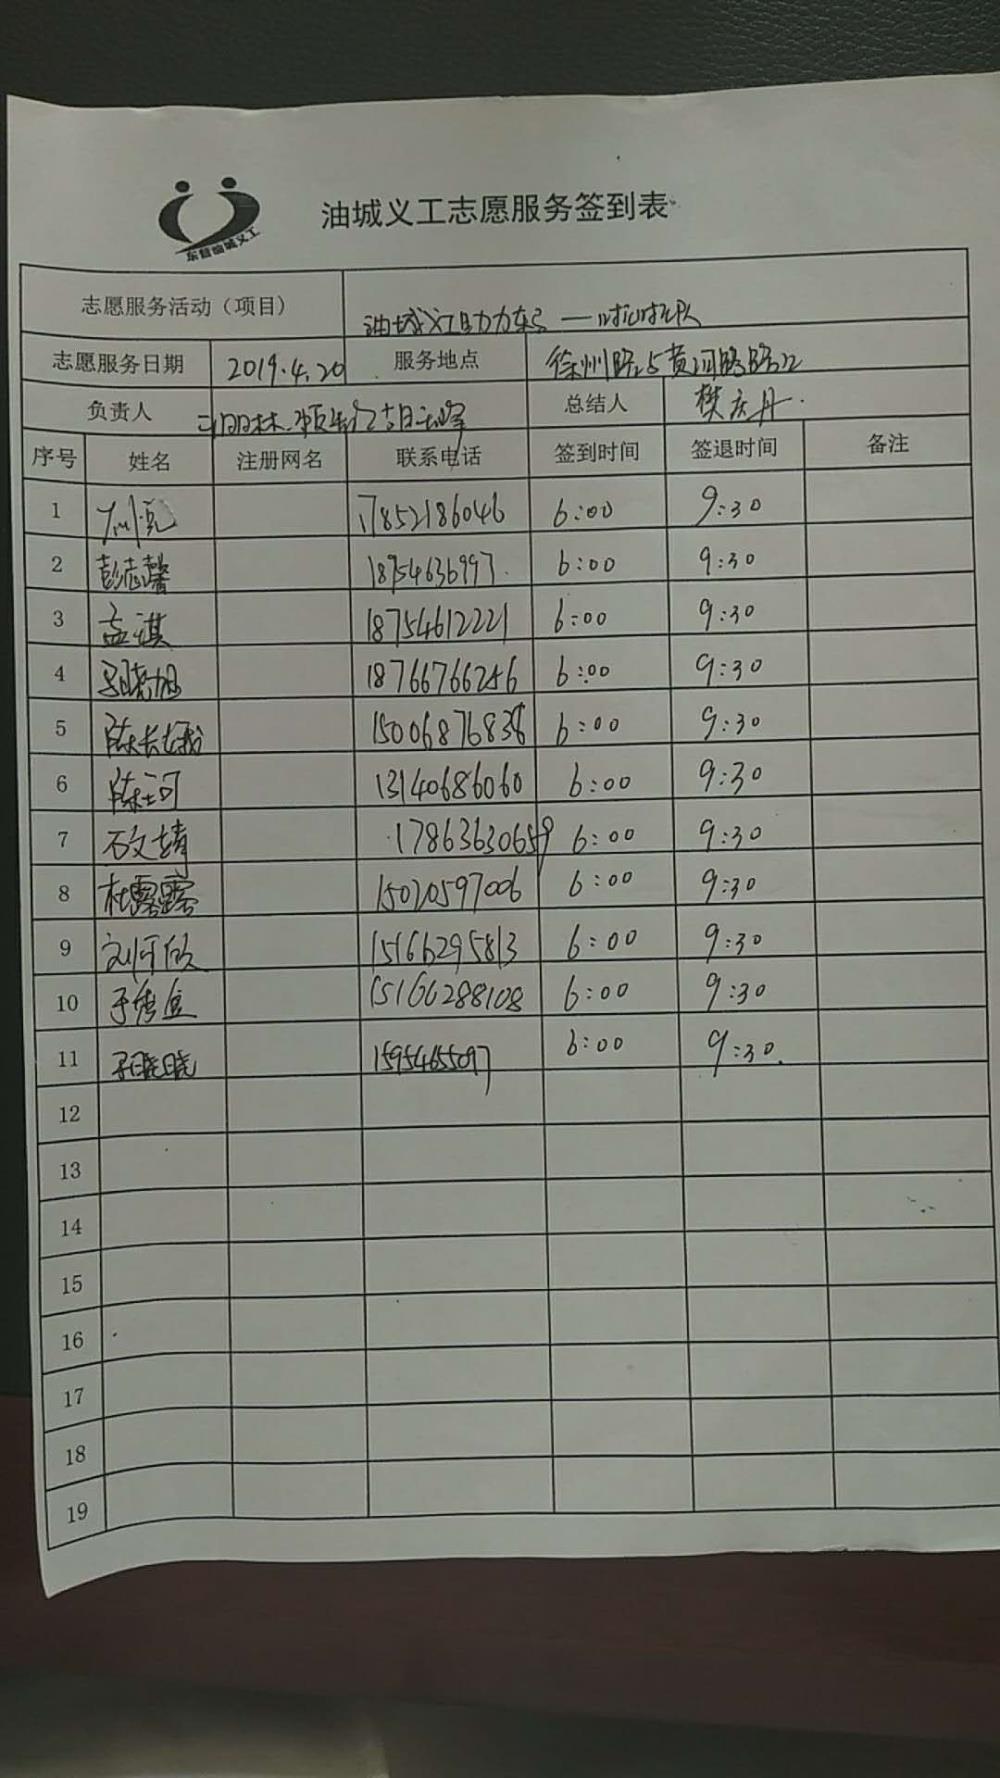 东营油城义工
油城义工志愿服务签到表
志愿服务活动（项目）
志愿服务日期 2019.4.20 服务地点 徐州路与黄河路路口
负责人 总结人 樊庆丹
序号 姓名 注册网名 联系电话 签到时间 签退时间 备注
1 17852186046 6:00 9:30
2 彭志馨 18954636997 6:00 9:30
3 孟祺 18754612221 6:00 9:30
4 18766766246 6:00 9:30
5 6:00 9:30
6 陈珂 13140686060 6:00 9:30
7 石文婧 17863630659 6:00 9:30
8 杜露露 15020597006 6:00 9:30
9 刘何欣 15166295813 6:00 9:30
10 15166288108 6:00 9:30
11 15954655097 6:00 9:30
12
13
14
15
16
17
18
19